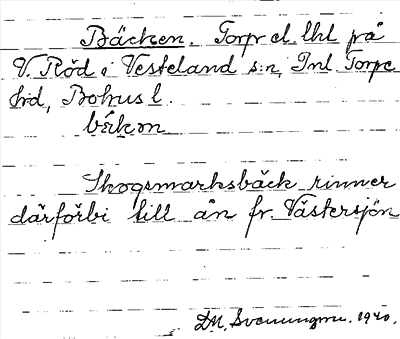 Bäcken. Torp el. lht på
V. Röd i Vesteland s:n, Inl. Torpe
hd, Bohus l.
bækm
Skogsmarksbäck rinner
därförbi till ån fr. Västersjön
D.M. Svenungsson. 1940.